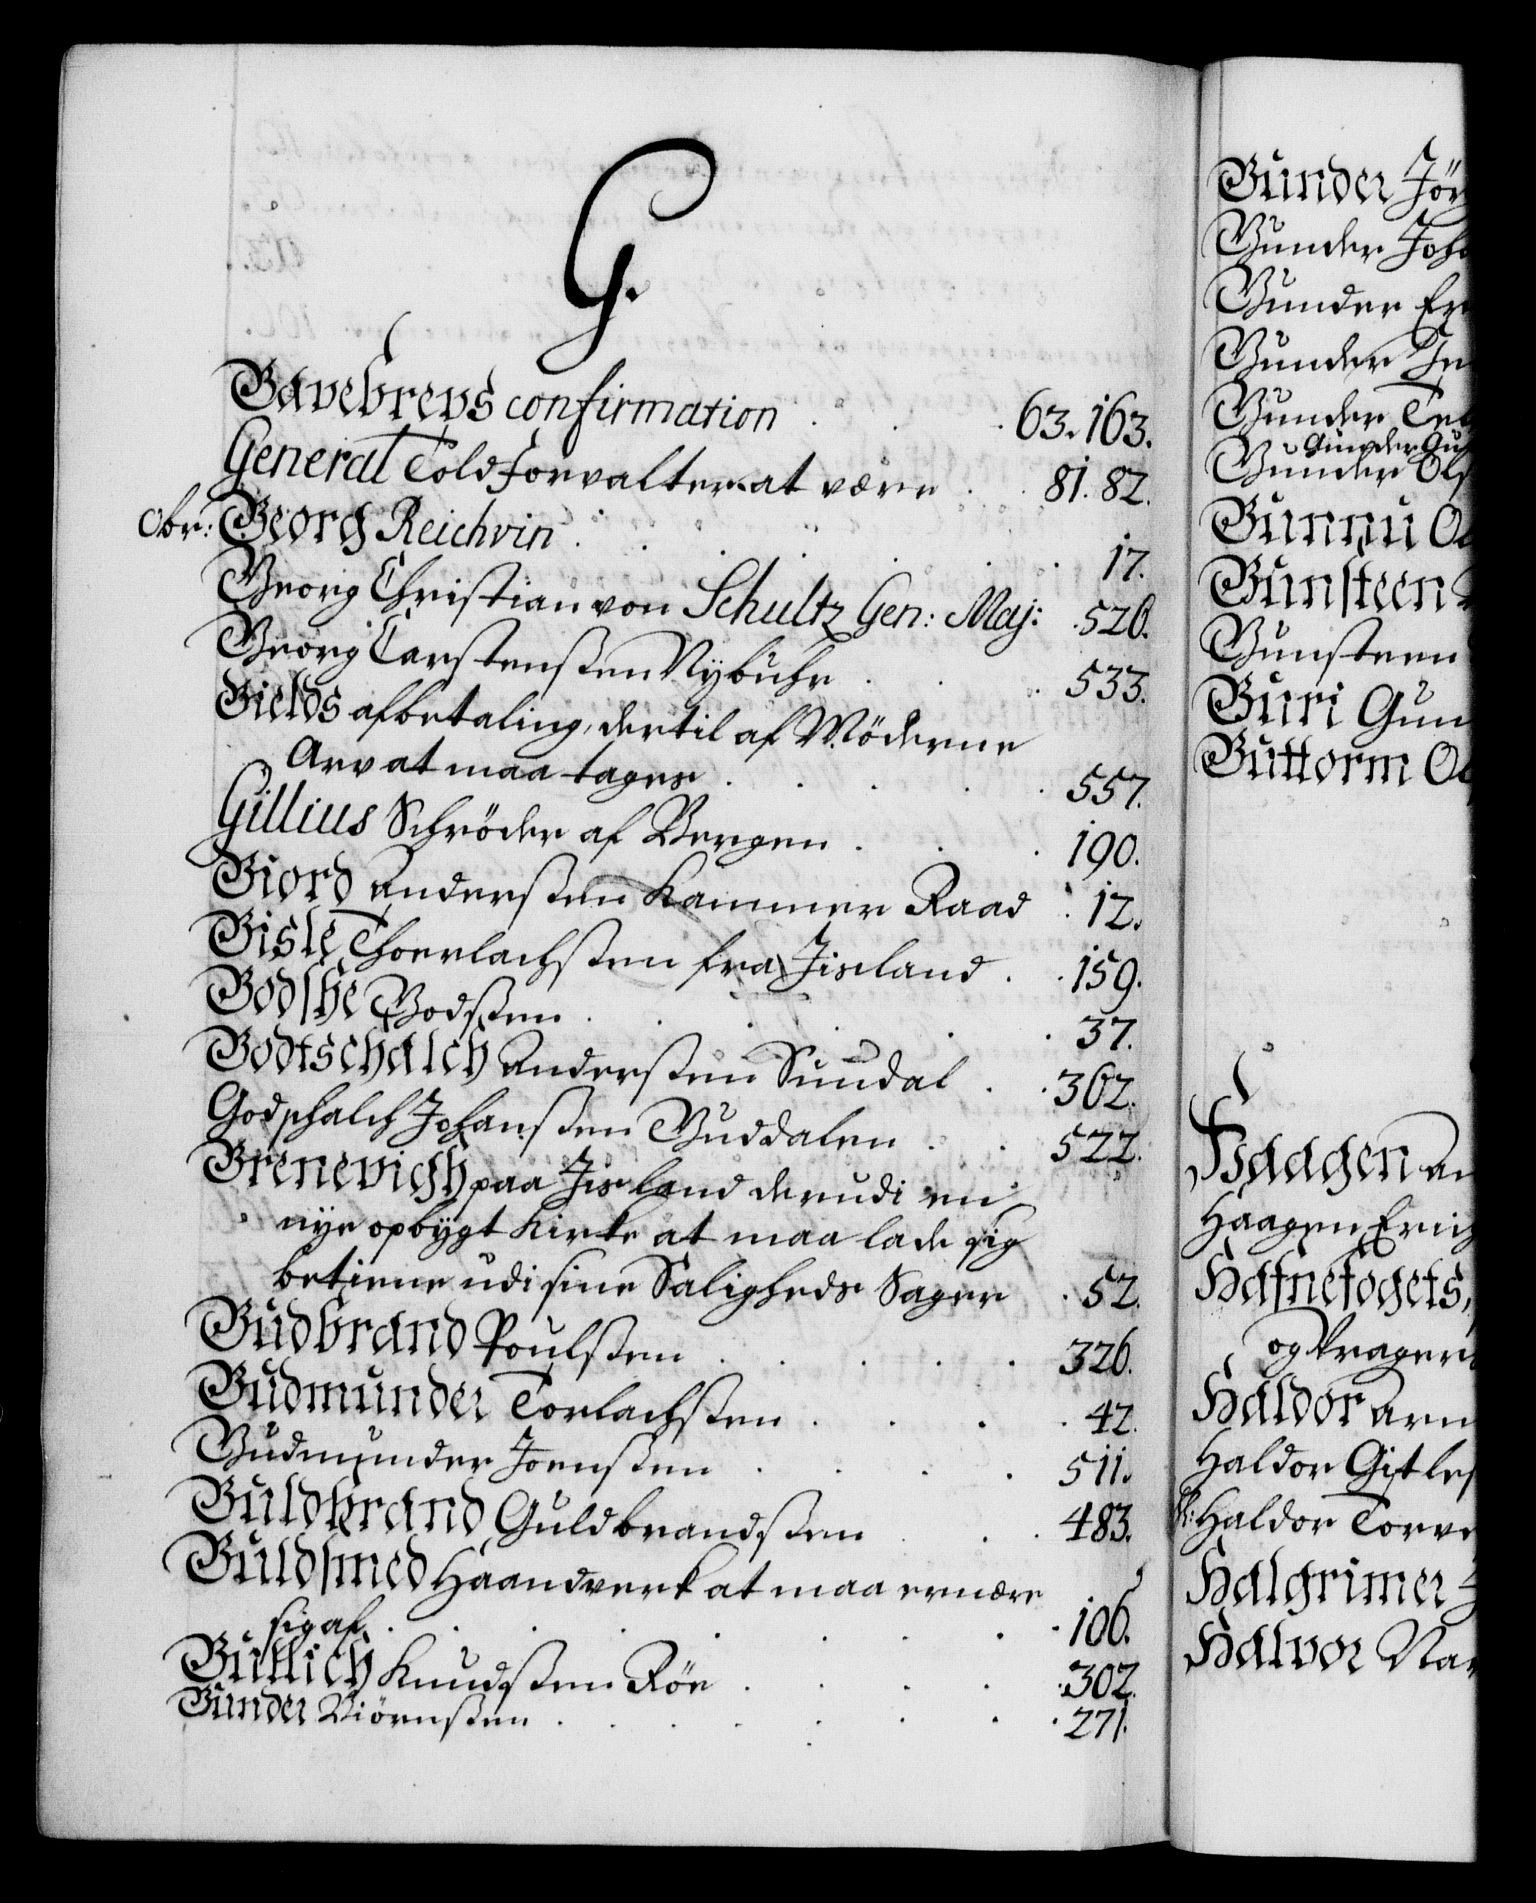 G.
Gavebrevs confirmation . . . 63. 163.
General Toldforvalter at være . . 81. 82.
Obr: Georg Reichvin . . . . . . 17.
Georg Christian von Schultz Gen: Maj: . 526.
Georg Carstenssen Nybuhr . . . 533.
Gields afbetaling, dertil af Møderne
Arv at maa tages . . . . . 557.
Gillius Schrøder af Bergen . . . 190.
Giord Anderssen Kammer Raad . 12.
Gisle Thorlachssen fra Iisland . . 159.
Godshe Godssen . . . . . . 37.
Godtschalch Anderssen Sundal . . 362.
Godschalch Johanssen Guddalen . . 522.
Grenevigh paa Iisland derudi en
nye opbygt Kirke at maa lade sig
betiene udi sine Saligheds Sager . 52.
Gudbrand Poulssen . . . . . 326.
Gudmunder Torlachssen . . . . 42.
Gudmunder Joenssen . . . . 511.
Guldbrand Guldbrandssen . . . 483.
Guldsmed Haandverk at maa ernære
sig af . . . . . . . . 106.
Gullich Knudssen Röe . . . . . 302.
Gunder Biörnssen . . . . . . . 271.
Gunder Jör
Gunder Joh
Gunder Er
Gunder
Gunder
Gunder
Gunder Ols
Gunnu
Gunsteen
Gunsteen
Guri Gun
Guttorm
Haagen An
Haagen Eri
Hafnefogets,
og Krager
Haldor Arn
Haldor Gitles
Haldor Torve
Halgrimer
Halvor Nar